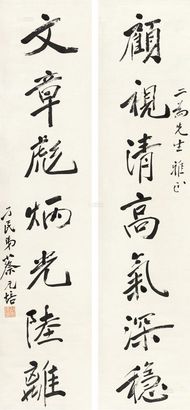 顧視清高氣深穩
二南先生雅正
文章彪炳光陸離
孑民弟蔡元培